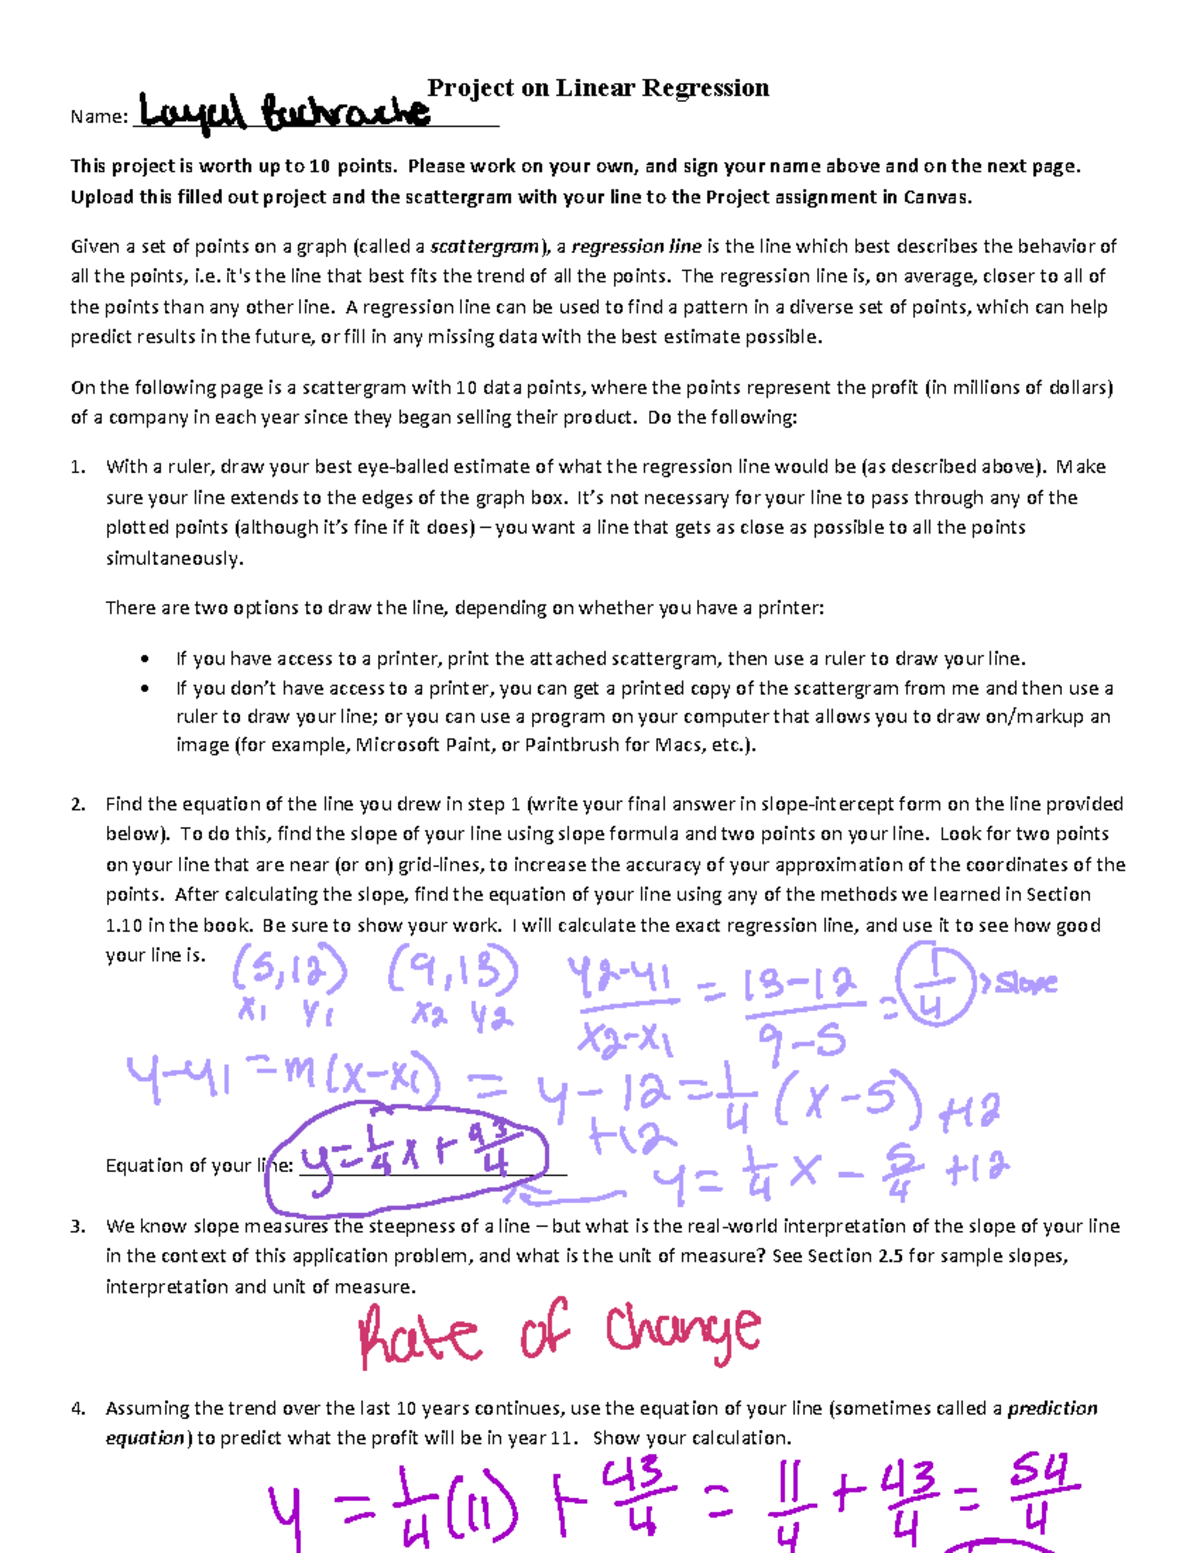 Project on Linear Regression
Name:
This project is worth up to 10 points. Please work on your own, and sign your name above and on the next page.
Upload this filled out project and the scattergram with your line to the Project assignment in Canvas.
Given a set of points on a graph (called a scattergram), a regression line is the line which best describes the behavior of
all the points, i.e. it's the line that best fits the trend of all the points. The regression line is, on average, closer to all of
the points than any other line. A regression line can be used to find a pattern in a diverse set of points, which can help
predict results in the future, or fill in any missing data with the best estimate possible.
On the following page is a scattergram with 10 data points, where the points represent the profit (in millions of dollars)
of a company in each year since they began selling their product. Do the following:
1. With a ruler, draw your best eye-balled estimate of what the regression line would be (as described above). Make
sure your line extends to the edges of the graph box. It's not necessary for your line to pass through any of the
plotted points (although it's fine if it does) – you want a line that gets as close as possible to all the points
simultaneously.
There are two options to draw the line, depending on whether you have a printer:
• If you have access to a printer, print the attached scattergram, then use a ruler to draw your line.
• If you don't have access to a printer, you can get a printed copy of the scattergram from me and then use a
ruler to draw your line; or you can use a program on your computer that allows you to draw on/markup an
image (for example, Microsoft Paint, or Paintbrush for Macs, etc.).
2. Find the equation of the line you drew in step 1 (write your final answer in slope-intercept form on the line provided
below). To do this, find the slope of your line using slope formula and two points on your line. Look for two points
on your line that are near (or on) grid-lines, to increase the accuracy of your approximation of the coordinates of the
points. After calculating the slope, find the equation of your line using any of the methods we learned in Section
1.10 in the book. Be sure to show your work. I will calculate the exact regression line, and use it to see how good
your line is.
(5,12) (9,13) y2-y1/x2-x1 = 13-12/9-5 = 1/4 > slope
x1 y1 x2 y2
y-y1 = m(x-x1) = y-12 = 1/4(x-5) +12
+12
y = 1/4x - 5/4 +12
Equation of your line: y=1/4x+43/4
3. We know slope measures the steepness of a line – but what is the real-world interpretation of the slope of your line
in the context of this application problem, and what is the unit of measure? See Section 2.5 for sample slopes,
interpretation and unit of measure.
Rate of change
4. Assuming the trend over the last 10 years continues, use the equation of your line (sometimes called a prediction
equation) to predict what the profit will be in year 11. Show your calculation.
y = 1/4(11) + 43/4 = 11/4 + 43/4 = 54/4